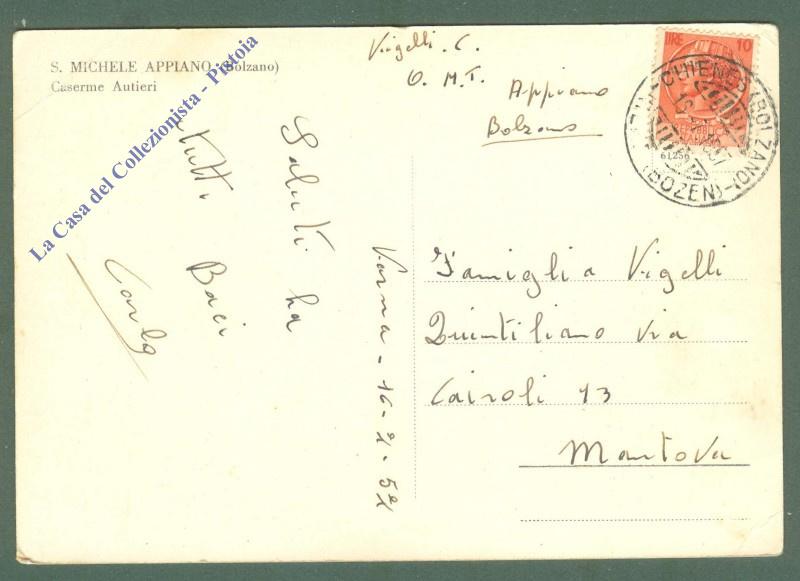 S. MICHELE APPIANO (Bolzano)
Caserme Autieri
La Casa del Collezionista - Pistoia
Vigelli. C.
O. M. T. Appiano
Bolzano
LIRE 10
CHIENES (BOLZANO)
(BOZEN)
61256
Saluti ha
tutti Baci
Carlo
Varna - 16-2-57
Famiglia Vigelli
Quintiliano Via
Cairoli 13
Mantova